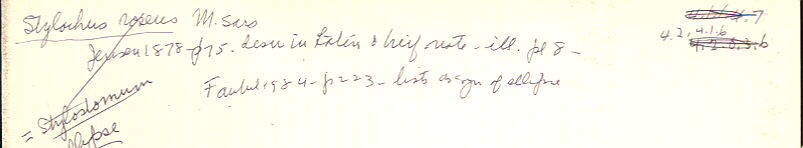 Stylochus roseus M. Sars
4.2.4.1.6
Jensen 1878-p75. descr in Latin & brief note - ill. pl 8 -
Faubel 1984-p223 - lists as syn of ellipse
= Stylostomum
ellipse